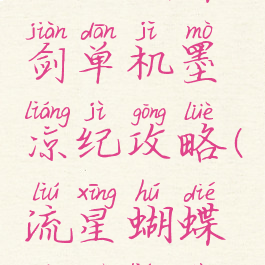 jiàn dān jī mò
剑单机墨
liáng jì gōng lüè
凉纪攻略(
liú xīng hú dié
流星蝴蝶